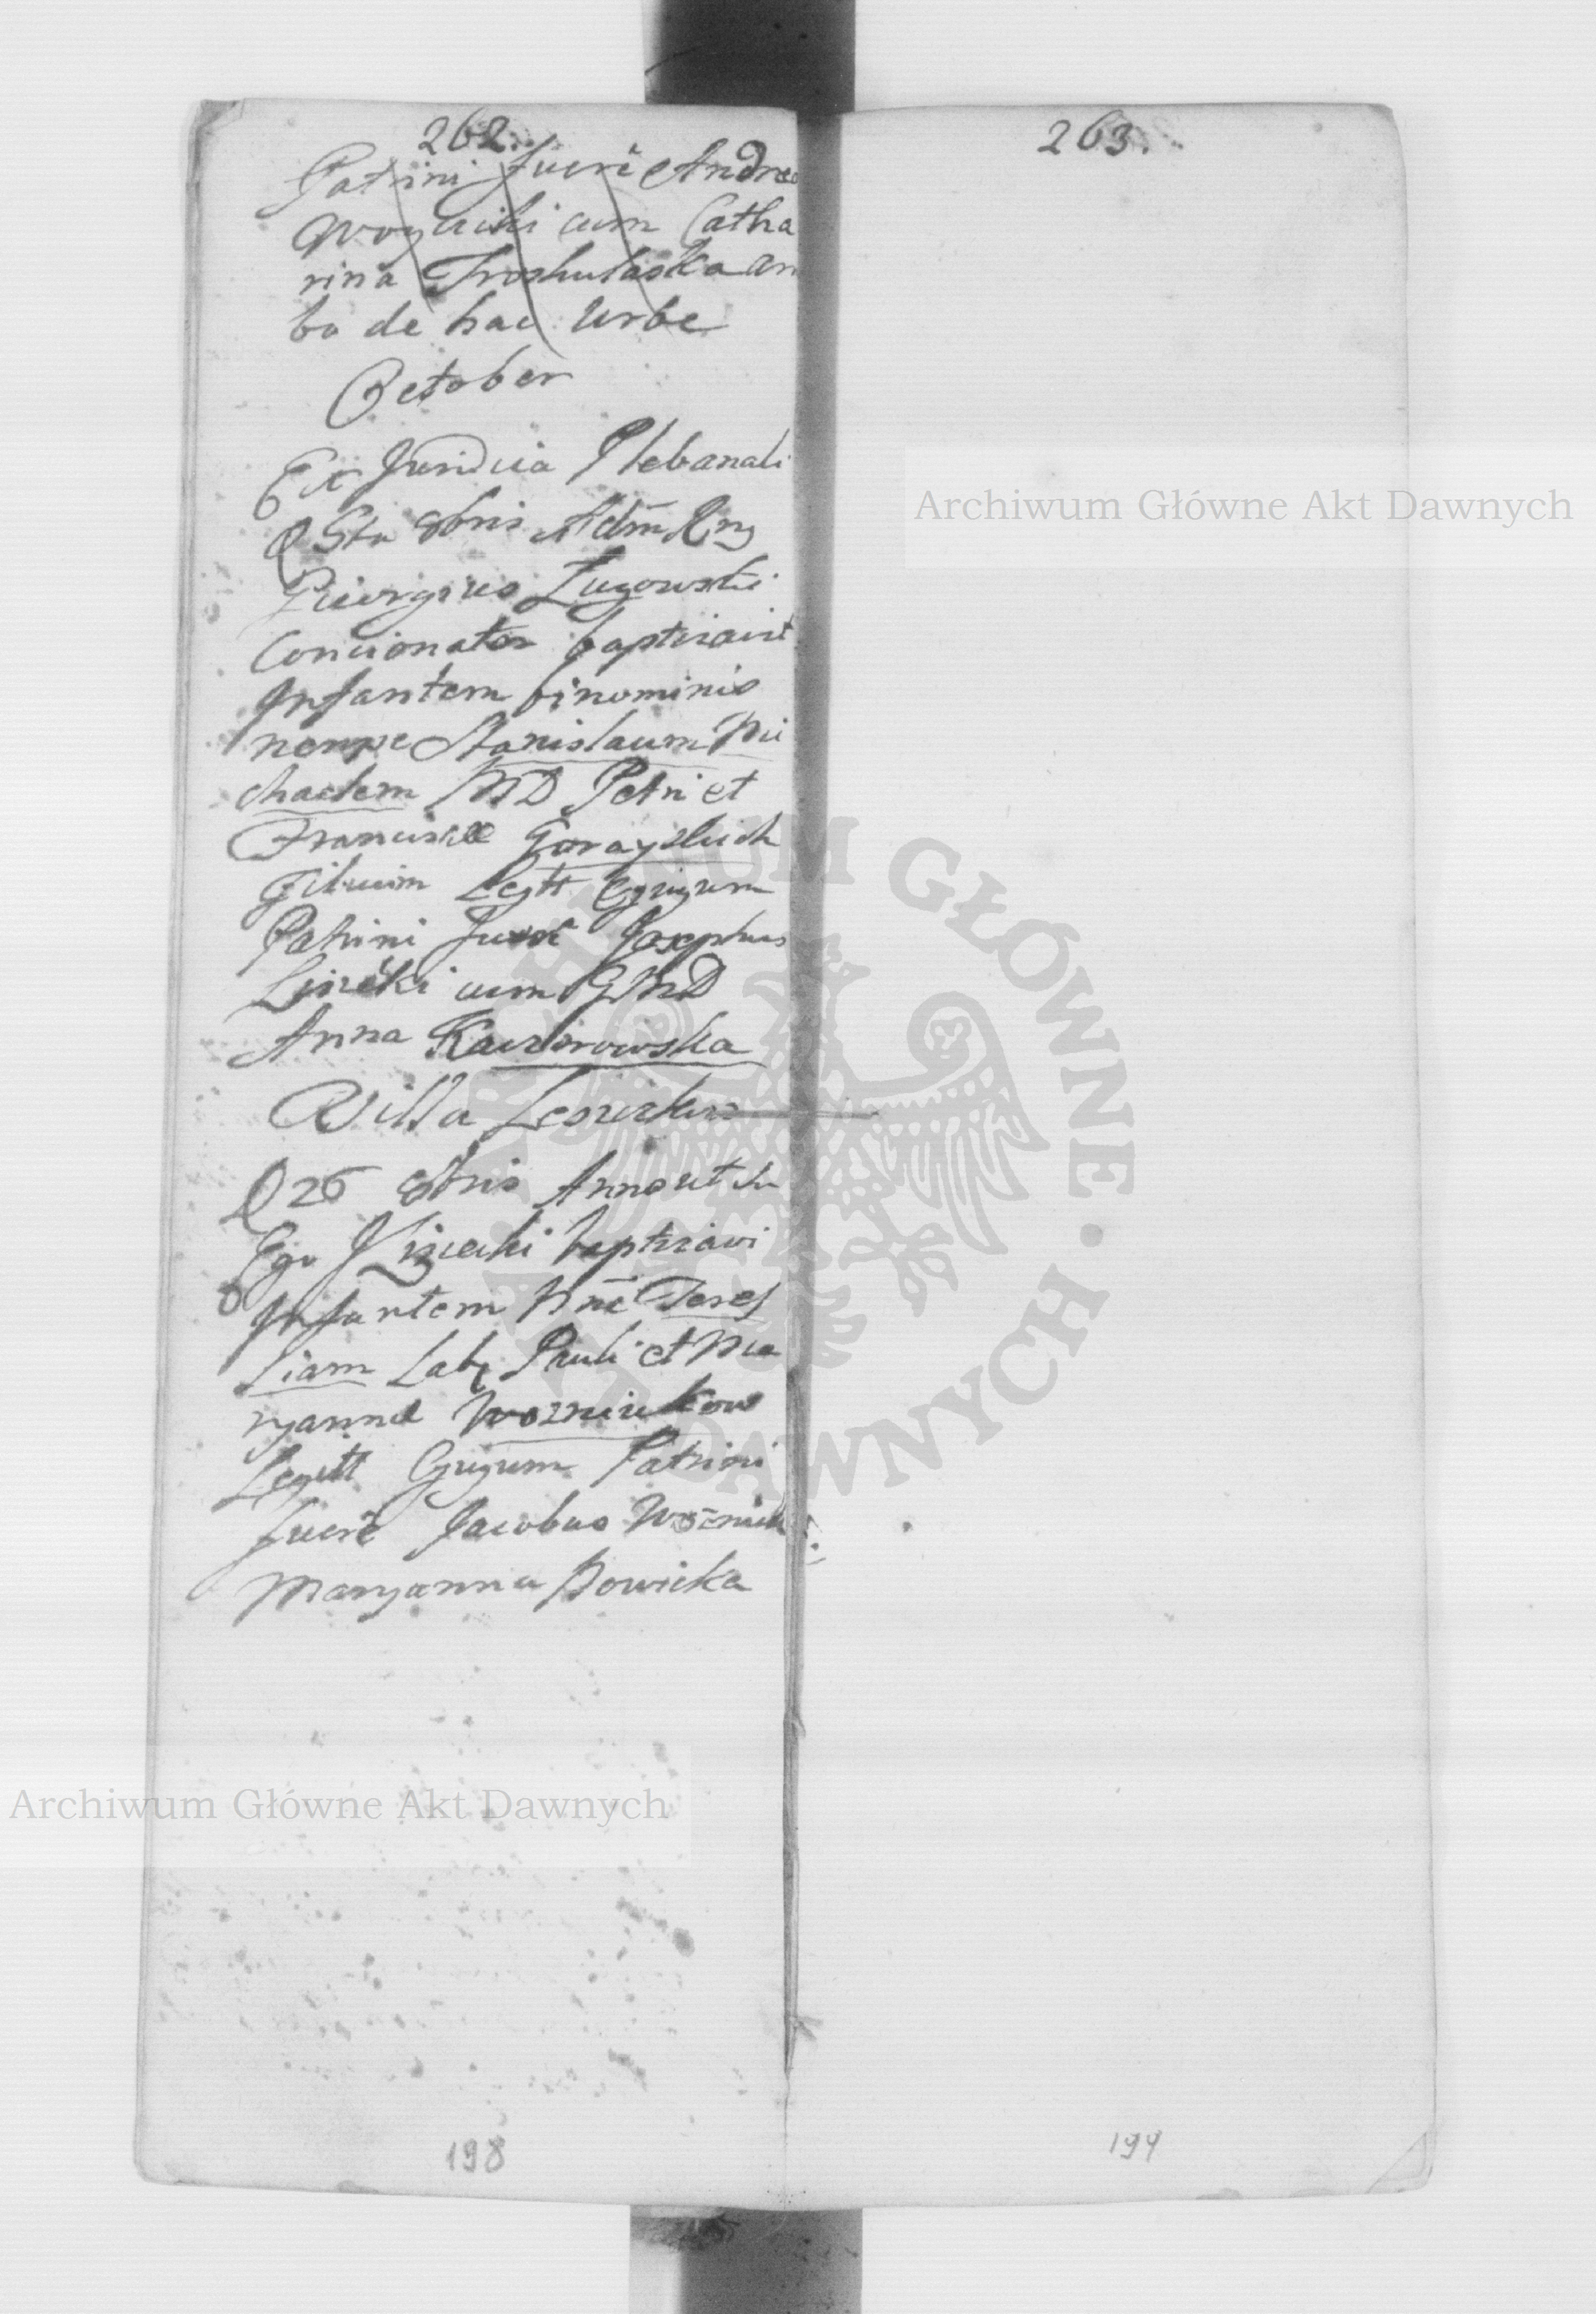 262.
Patrini fuerē Andreas
Woyciciki cum Catha
rina am
bo de hac Urbe
October
Ex Juridica Plebanali
D 5ta 8bris Adm Rnd
Georgius Zugowski
Concionator baptizavit
Infantem binominis
nempe Stanislaum Mi
chaelem MD Petri et
Franciscæ Gorayskich
Filium Legtt Cjugum
Patrini fuerē Josephus
Lipicki cum GMD
Anna
Villa
D 26 8bris Anno ut su
Ego baptizavi
Infantem Nnē Teres
siam Lab Pauli et Ma
ryannæ Wozniakow
Legitt Cjugum Patrini
fuerē Jacobus Wozniak
Maryanna Nowicka
198
263.
199
Archiwum Główne Akt Dawnych
Archiwum Główne Akt Dawnych
ARCHIWUM GŁÓWNE
AKT DAWNYCH